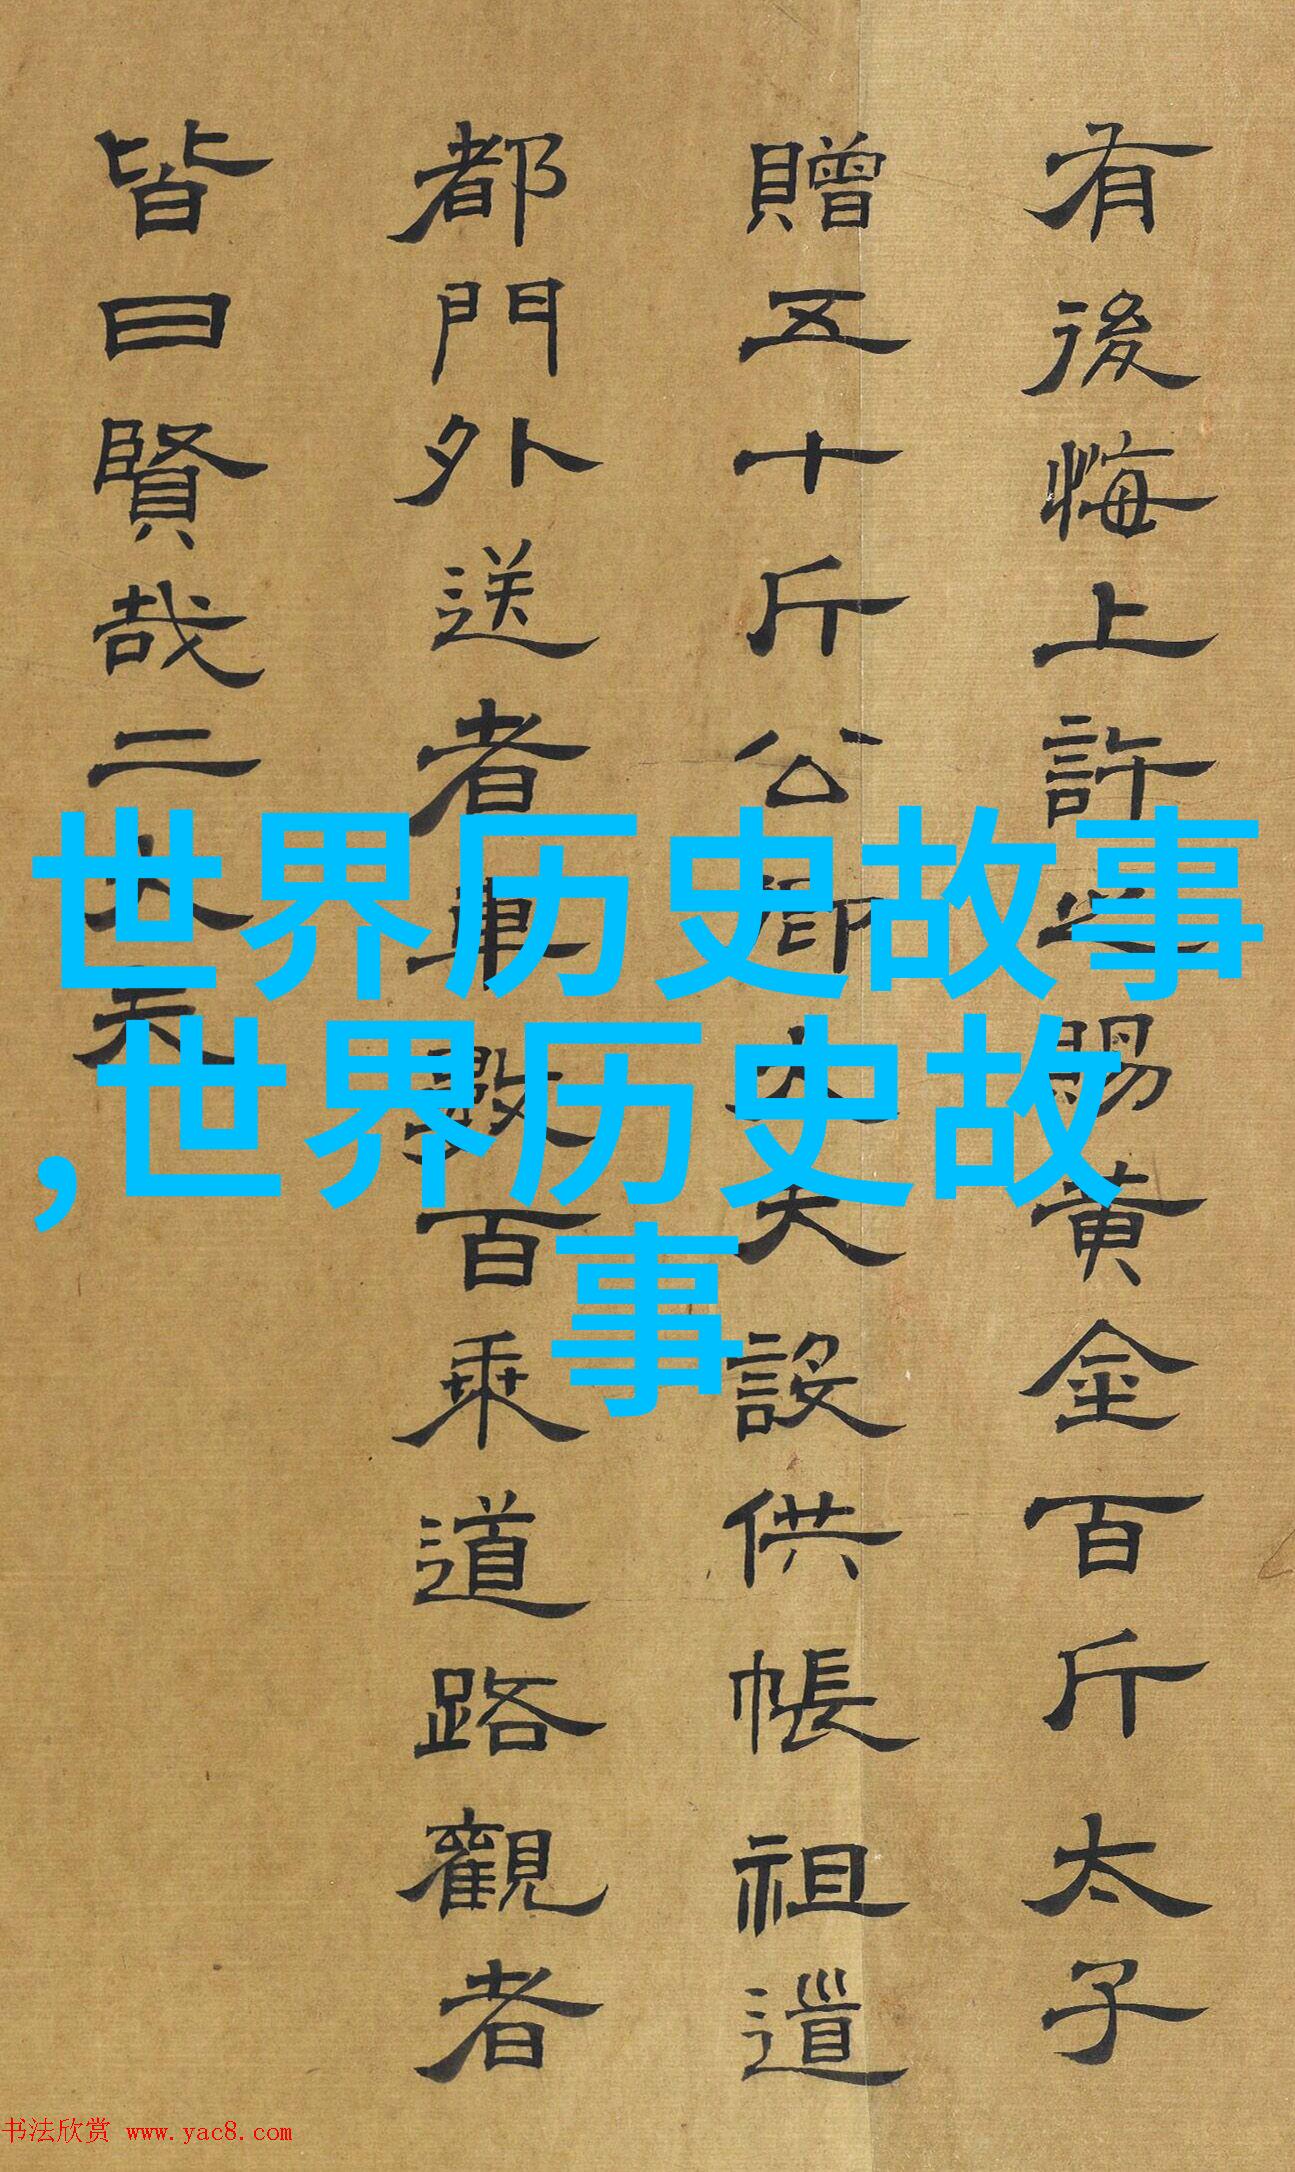 有後悔上許之賜黃金百斤太子
贈五十斤公卿大夫設供帳祖道
都門外送者車數百乘道路觀者
皆曰賢哉二大夫
世界历史故事
,世界历史故
事
书法欣赏 www.yac8.com